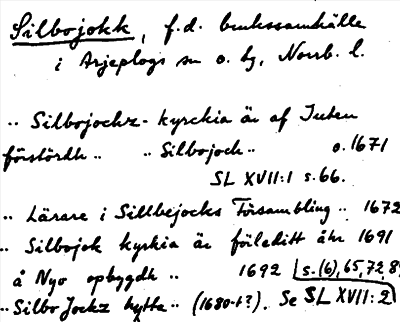 Silbojokk, f.d. brukssamhälle
i Arjeplogs sn o. hg, Norrb. l.
" Silbojockz-kyrckia är af Juten
förstördh " " Silbojoch " o. 1671
SL XVII:1 s. 66.
" Lärare i Sillbejocks Försambling " 1672
" Silbojok kyrkia är förleditt åhr 1691
å Nyo opbygdh " 1692 s. (6), 65, 72, 8
" Silbo Jockz hytta " (1680-t?). Se SL XVII:2